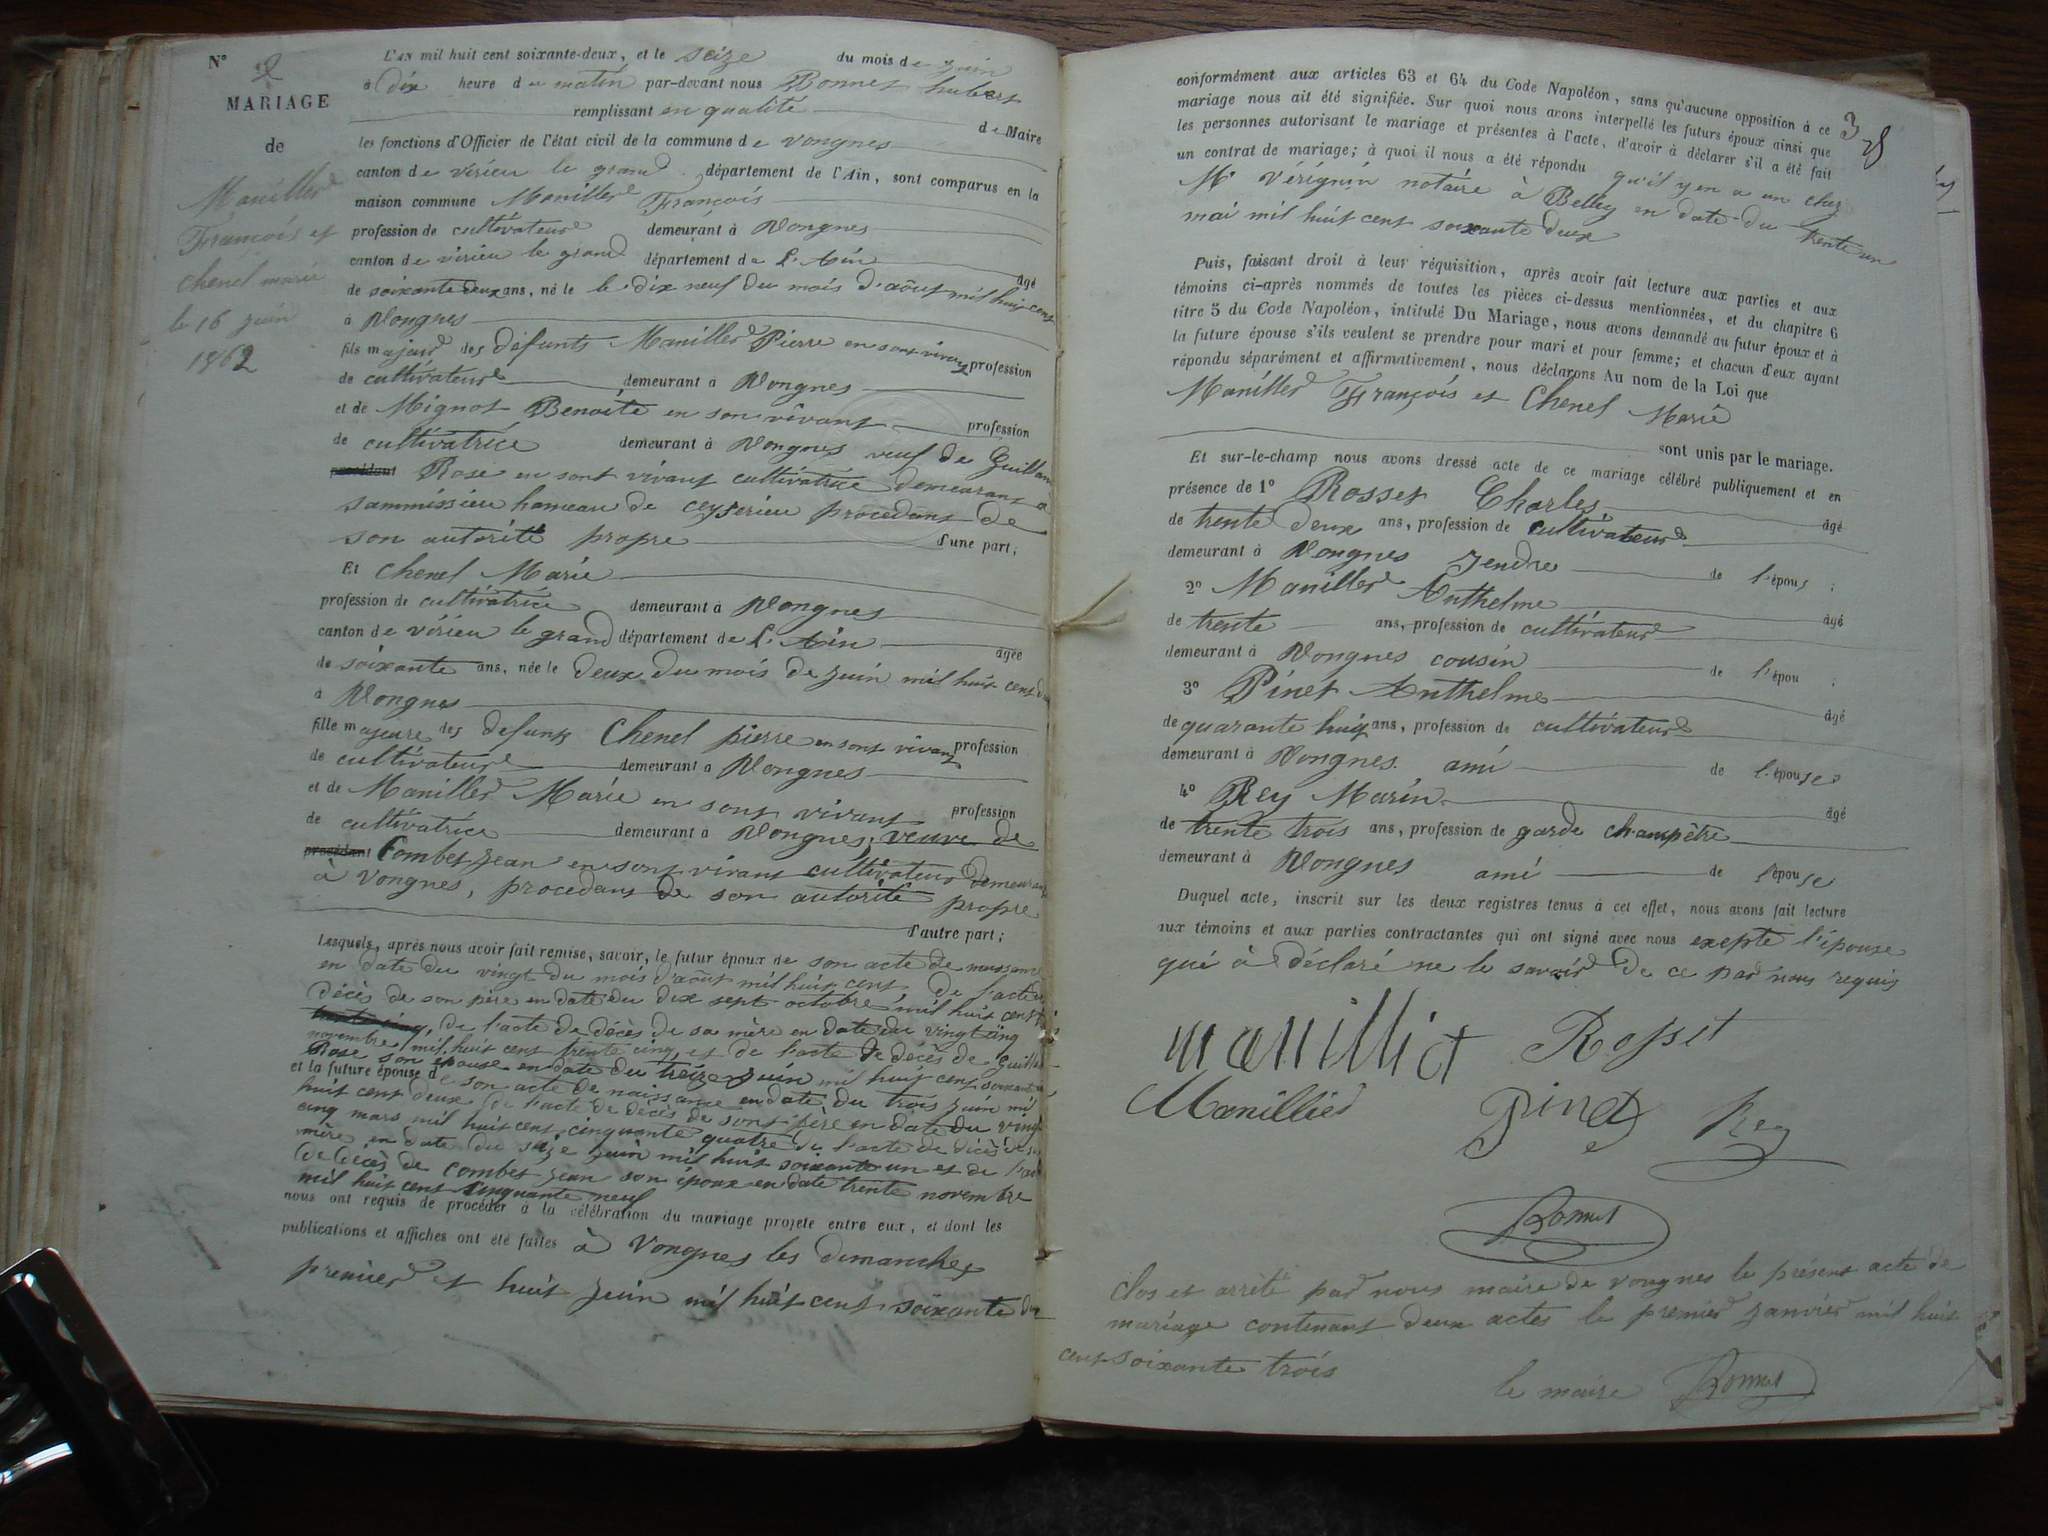 N° 2
MARIAGE
de
Manillier
François et
chenel marie
le 16 juin
1862
L'AN mil huit cent soixante-deux, et le seize du mois de juin
à dix heure du matin par-devant nous Bonnet hubert
remplissant en qualité de Maire
les fonctions d'Officier de l'état civil de la commune de vongnes
canton de virieu le grand département de l'Ain, sont comparus en la
maison commune Manillier François
profession de cultivateur demeurant à Vongnes
canton de virieu le grand département de L'Ain âgé
de soixante deux ans, né le le dix neuf du mois d'août mil huit cent
à Vongnes
fils majeur des défunts Manillier Pierre en sont vivant profession
de cultivateur demeurant à Vongnes
et de Mignot Benoite en son vivant profession
de cultivatrice demeurant à Vongnes veuf de Guilland
procédant Rose en sont vivant cultivatrice demeurant a
sammissieu hameau de ceyserieu procedant de
son autorité propre d'une part;
Et Chenel Marie
profession de cultivatrice demeurant à Vongnes
canton de virieu le grand département de L'Ain âgée
de soixante ans, née le deux du mois de juin mil huit cent d
à Vongnes
fille majeure des defunts Chenel pierre en sont vivant profession
de cultivateur demeurant à Vongnes
et de Manillier Marie en sont vivant profession
de cultivatrice demeurant à Vongnes, veuve de
procédant Combet jean en sont vivant cultivateur demeurant
à Vongnes, procedant de son autorité propre
d'autre part;
Lesquels, après nous avoir fait remise, savoir, le futur époux de son acte de naissance
en date du vingt du mois d'août mil huit cent de l'acte de
décès de son père en date du dix sept octobre mil huit cent
de l'acte de décès de sa mère en date du vingt cinq
novembre mil huit cent trente cinq, et de l'acte de décès de guilland
Rose son épouse en date du treize juin mil huit cent soixante
et la future épouse de son acte de naissance en date du trois juin mil
huit cent deux de l'acte de décès de sont père en date du vingt
cinq mars mil huit cent cinquante quatre de l'acte de décès de sa
mère en date du seize juin mil huit soixante un et de l'acte
de décès de Combet jean son époux en date trente novembre
mil huit cent cinquante neuf
nous ont requis de procéder à la célébration du mariage projeté entre eux, et dont les
publications et affiches ont été faites à Vongnes les dimanches
premier et huit juin mil huit cent soixante deux
conformément aux articles 63 et 64 du Code Napoléon, sans qu'aucune opposition à ce
mariage nous ait été signifiée. Sur quoi nous avons interpellé les futurs époux ainsi que
les personnes autorisant le mariage et présentes à l'acte, d'avoir à déclarer s'il a été fait
un contrat de mariage; à quoi il nous a été répondu qu'il y en a un chez
Mr Vérignin notaire à Belley en date du trente un
mai mil huit cent soixante deux
Puis, faisant droit à leur réquisition, après avoir fait lecture aux parties et aux
témoins ci-après nommés de toutes les pièces ci-dessus mentionnées, et du chapitre 6
titre 5 du Code Napoléon, intitulé Du Mariage, nous avons demandé au futur époux et à
la future épouse s'ils veulent se prendre pour mari et pour femme; et chacun d'eux ayant
répondu séparément et affirmativement, nous déclarons Au nom de la Loi que
Manillier François et Chenel Marie
sont unis par le mariage.
Et sur-le-champ nous avons dressé acte de ce mariage célébré publiquement et en
présence de 1° Rosset Charles âgé
de trente deux ans, profession de cultivateur
demeurant à Vongnes jendre de l'épous ;
2° Manillier Anthelme âgé
de trente ans, profession de cultivateur
demeurant à Vongnes cousin de l'épou ;
3° Pinet Anthelme âgé
de quarante huit ans, profession de cultivateur
demeurant à Vongnes ami de l'épouse
4° Rey Marin âgé
de trente trois ans, profession de garde champêtre
demeurant à Vongnes ami de l'épouse
Duquel acte, inscrit sur les deux registres tenus à cet effet, nous avons fait lecture
aux témoins et aux parties contractantes qui ont signé avec nous exepte l'épouse
qui à déclaré ne le savoir de ce par nous requis
manillier Rosset
Manillier Pinet Rey
Bonnet
Clos et arrêté par nous maire de vongnes le présent acte de
mariage contenant deux actes le premier janvier mil huit
cent soixante trois
le maire Bonnet